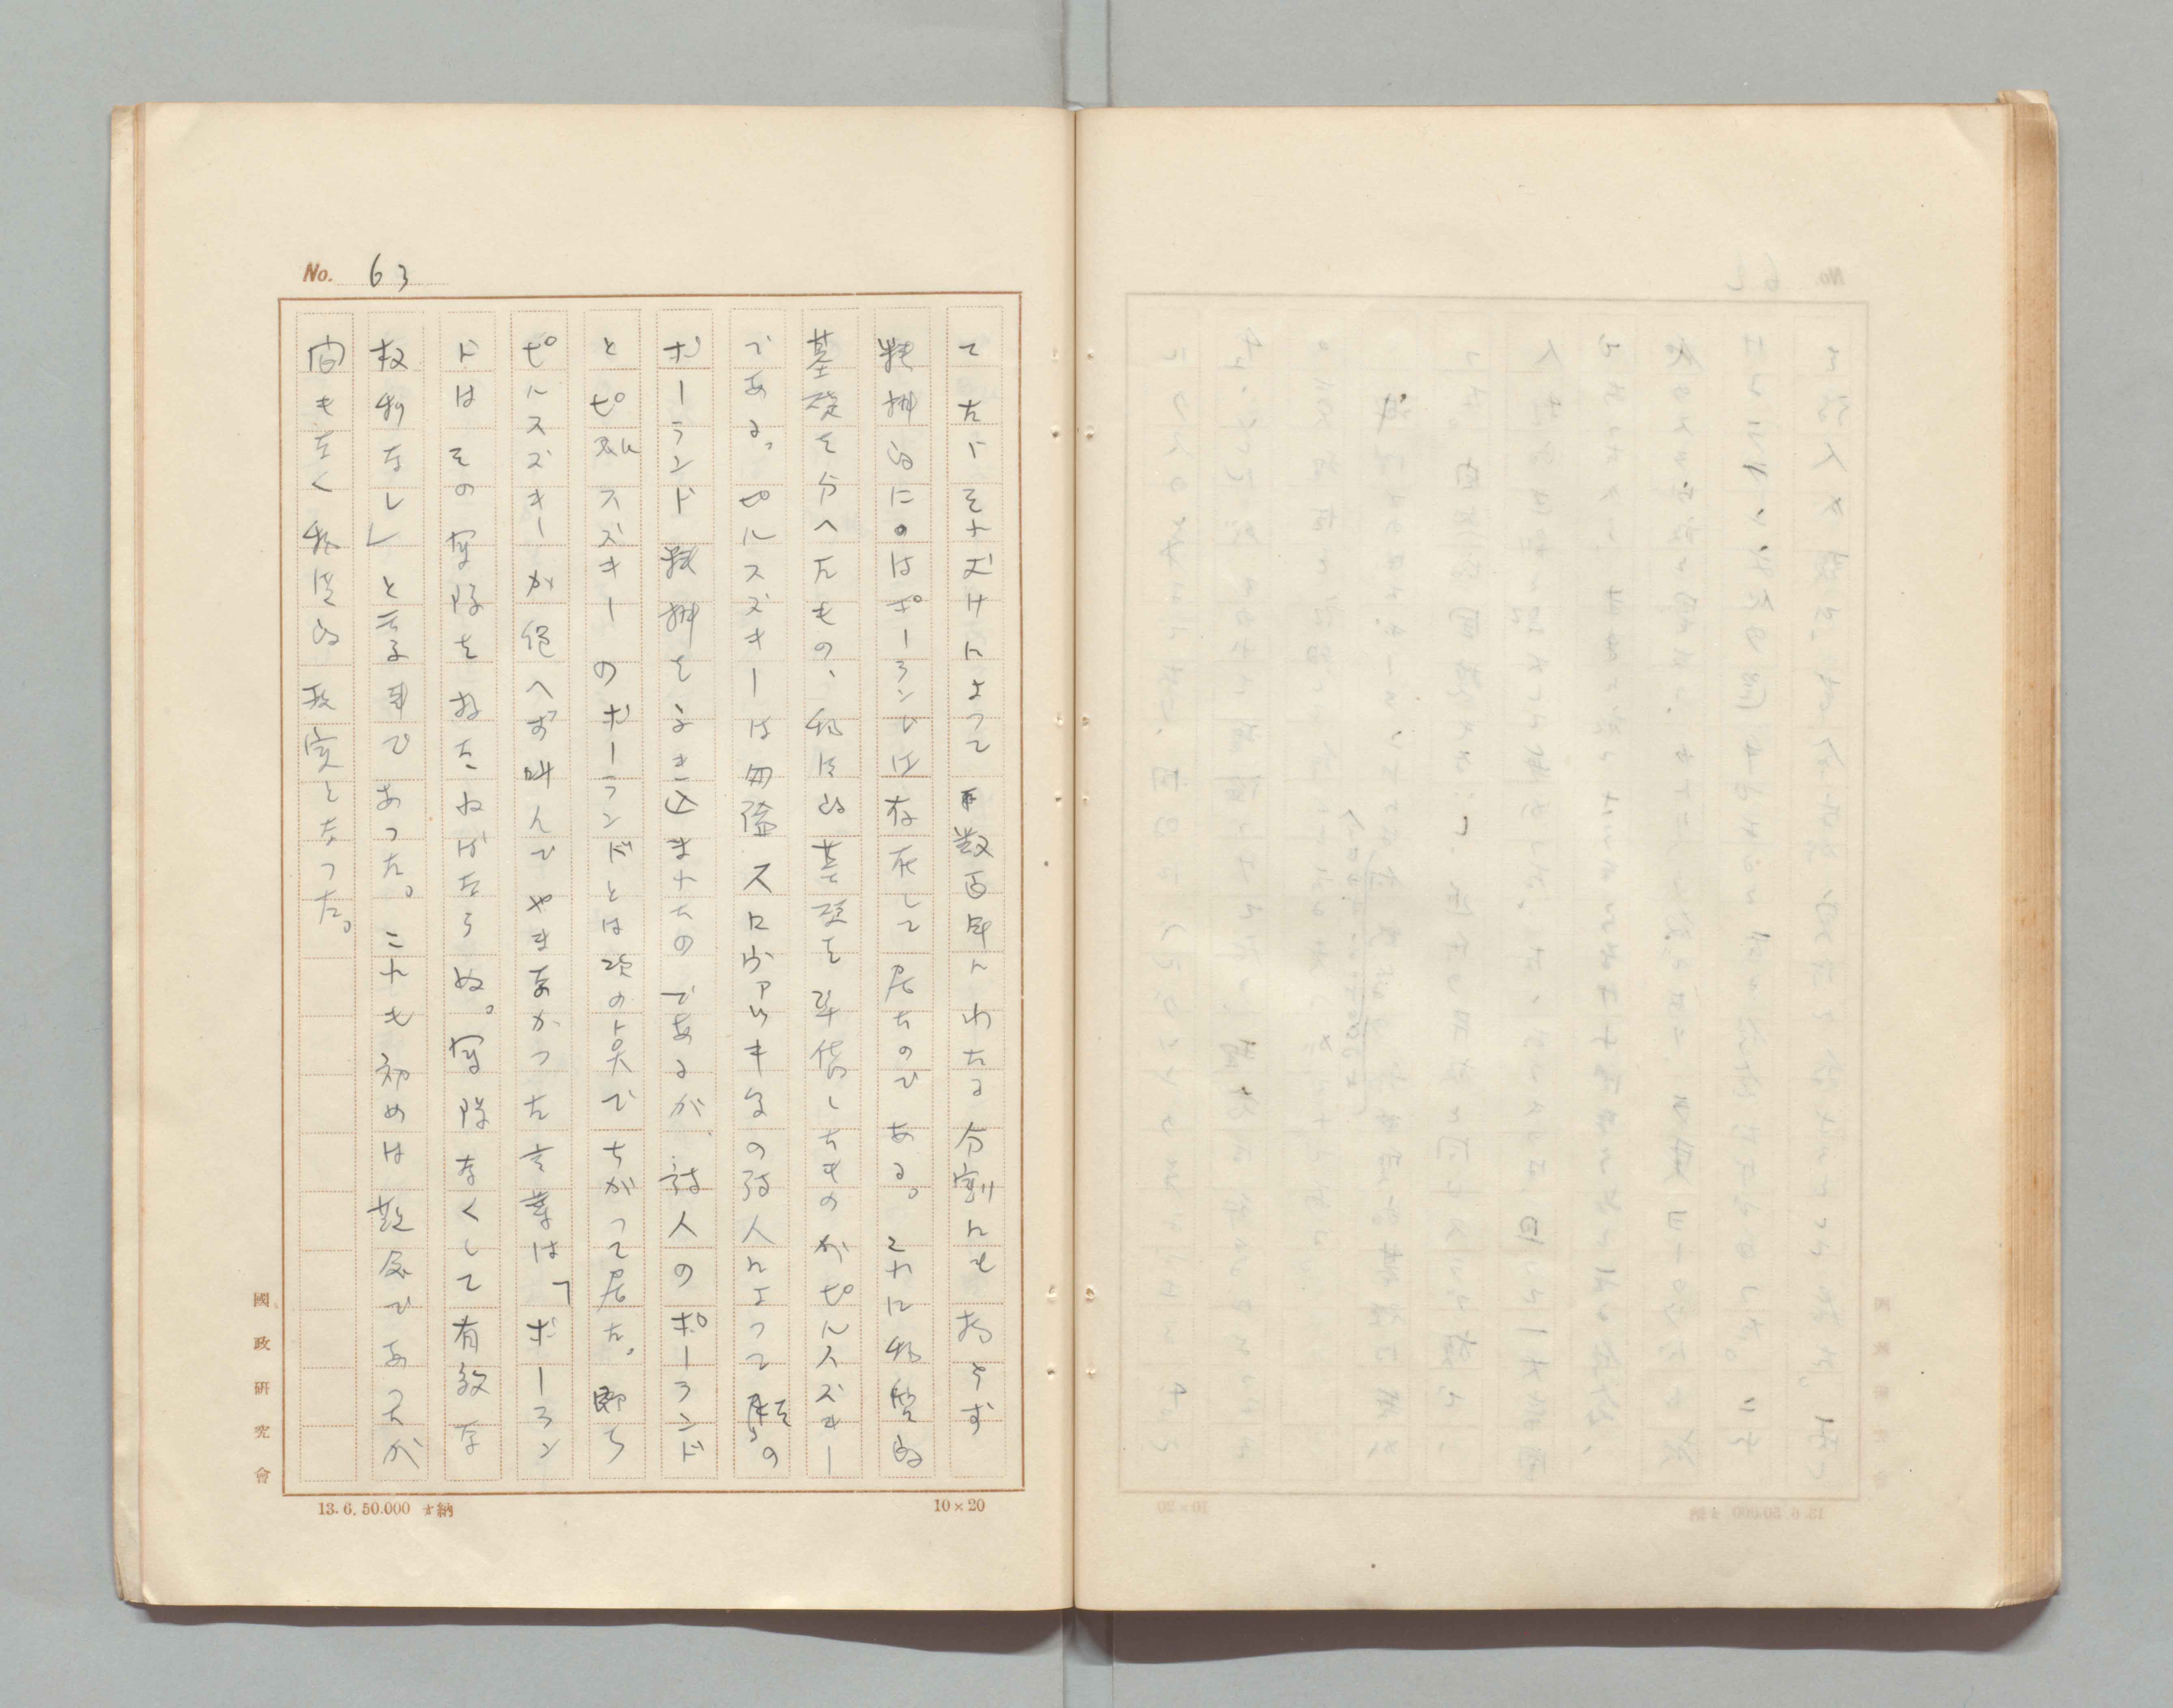 No. 63
てたゞそれだけによって数百年にわたる分割にも拘らず
精神的にはポーランドは存在して居たのである。これに物質的
基礎を与へたもの、基礎を準備したものがピルスズキー
である。ピルスズキーは勿論スロヴァツキ等の詩人によって の
ポーランド精神をふき込まれたのであるが、詩人のポーランド
とピルスズキーのポーランドとは次の点でちがって居た。即ち
ピルスズキーが絶へず叫んでやまなかった言葉は「ポーラン
ドはその軍隊を有たねばならぬ。軍隊なくして有效な
なし」と云ふ事であった。これも初めは であったが
間もなく 現実となった。
國政研究會
13. 6. 50.000 納
10×20